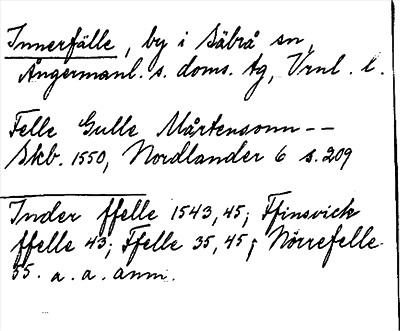 Innerfälle, by i Säbrå sn,
Ångermanl. s. doms. tg, Vrnl. l.
Felle Gulle Mårtensonn --
Skb. 1550, Nordlander 6 s. 209
Inder ffelle 1543, 45; Ffinsvick
ffelle 43; Ffelle 35, 45; Nörrefelle
35. a. a. anm.